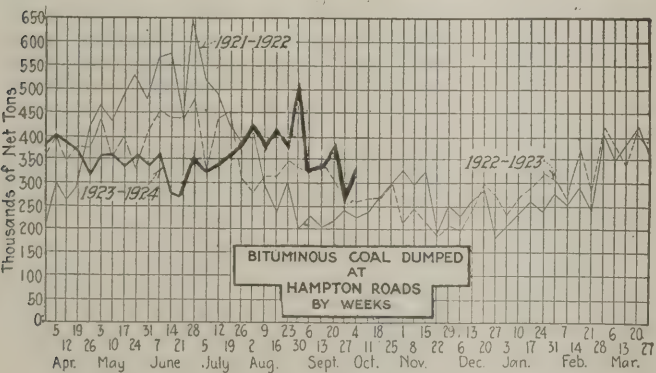 650
600
550
500
450
400
350
300
250
200
150
100
50
0
Thousands of Net Tons
1921-1922
1922-1923
1923-1924
BITUMINOUS COAL DUMPED
AT
HAMPTON ROADS
BY WEEKS
5 19 3 17 31 14 28 12 26 9 23 6 20 4 18 1 15 29 13 27 10 24 7 21 6 20
12 26 10 24 7 21 5 19 2 16 30 13 27 11 25 8 22 6 20 3 17 31 14 28 13 27
Apr. May June July Aug. Sept. Oct. Nov. Dec. Jan. Feb. Mar.